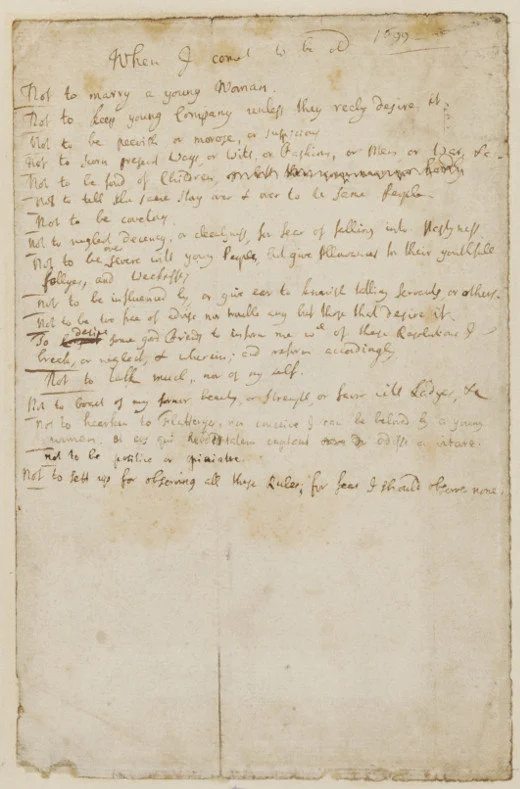 When I come to be old 1699
Not to marry a young Woman.
Not to keep young Company unless they reely desire it.
Not to be peevish or morose, or suspicious
Not to scorn present Ways, or Wits, or Fashions, or Men, or War, &c
Not to be fond of Children,
Not to tell the same Story over & over to the same People
Not to be covetous.
Not to neglect decency, or cleenlyness, for fear of falling into Nastyness.
Not to be over severe with young People, but give Allowances for their youthfull
follyes, and Weeknesses
Not to be influenced by, or give ear to knavish tatling Servants, or others.
Not to be too free of advise nor trouble any but those that desire it.
To desire some good Friends to inform me wch of these Resolutions I
break, or neglect, & wherein; and reform accordingly
Not to talk much, nor of my self.
Not to boast of my former beauty, or Strength, or favor with Ladyes, &c
Not to hearken to Flatteryes, nor conceive I can be beloved by a young
woman. et eos qui hereditatem captant odisse ac vitare.
Not to be positive or opiniatre.
Not to sett up for observing all these Rules, for fear I should observe none.